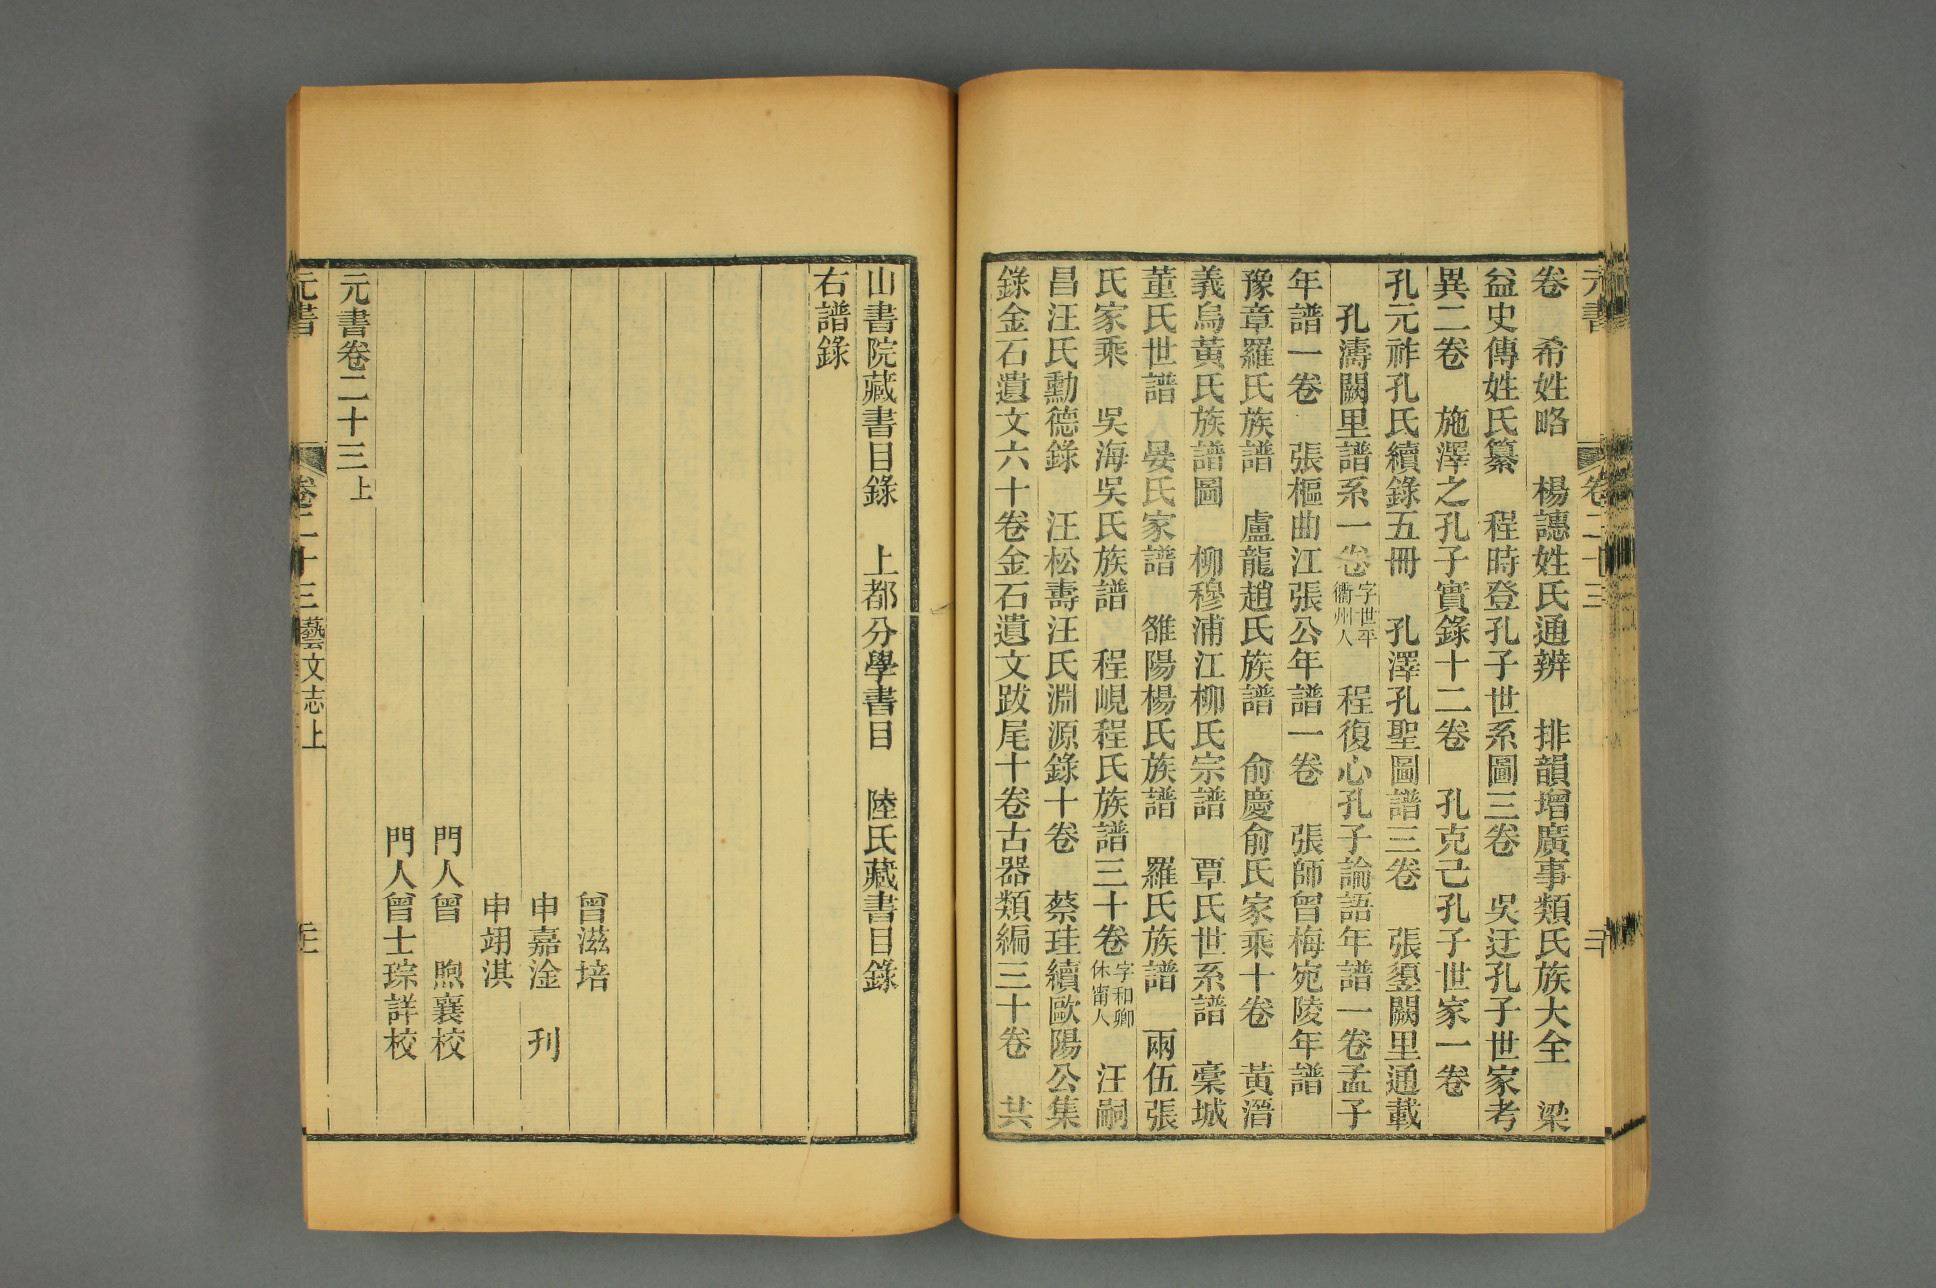 元書
卷二十三
二十
卷　希姓略　楊譓姓氏通辨　排韻增廣事類氏族大全　梁
益史傳姓氏纂　程時登孔子世系圖三卷　吳迂孔子世家考
異二卷　施澤之孔子實錄十二卷　孔克己孔子世家一卷
孔元祚孔氏續錄五冊　孔澤孔聖圖譜三卷　張𩓐闕里通載
孔濤闕里譜系一卷字世平衢州人　程復心孔子論語年譜一卷孟子
年譜一卷　張樞曲江張公年譜一卷　張師曾梅宛陵年譜
豫章羅氏族譜　盧龍趙氏族譜　俞慶俞氏家乘十卷　黃溍
義烏黃氏族譜圖　柳穆浦江柳氏宗譜　覃氏世系譜　槀城
董氏世譜　晏氏家譜　雒陽楊氏族譜　羅氏族譜　兩伍張
氏家乘　吳海吳氏族譜　程峴程氏族譜三十卷字和卿休甯人　汪嗣
昌汪氏勳德錄　汪松壽汪氏淵源錄十卷　蔡珪續歐陽公集
錄金石遺文六十卷金石遺文跋尾十卷古器類編三十卷　共
山書院藏書目錄　上都分學書目　陸氏藏書目錄
右譜錄
曾滋培
申嘉淦　刊
申翊淇
門人曾　煦襄校
門人曾士琮詳校
元書卷二十三上
元書
卷二十三藝文志上